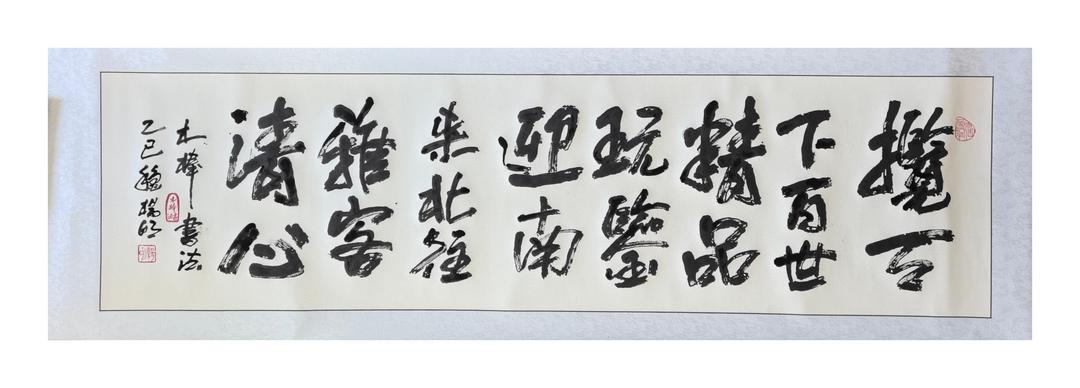 攬天
下百世
精品
玩鑒
迎南
来北往
雅客
清心
木棒書法
乙巳穆瑞明